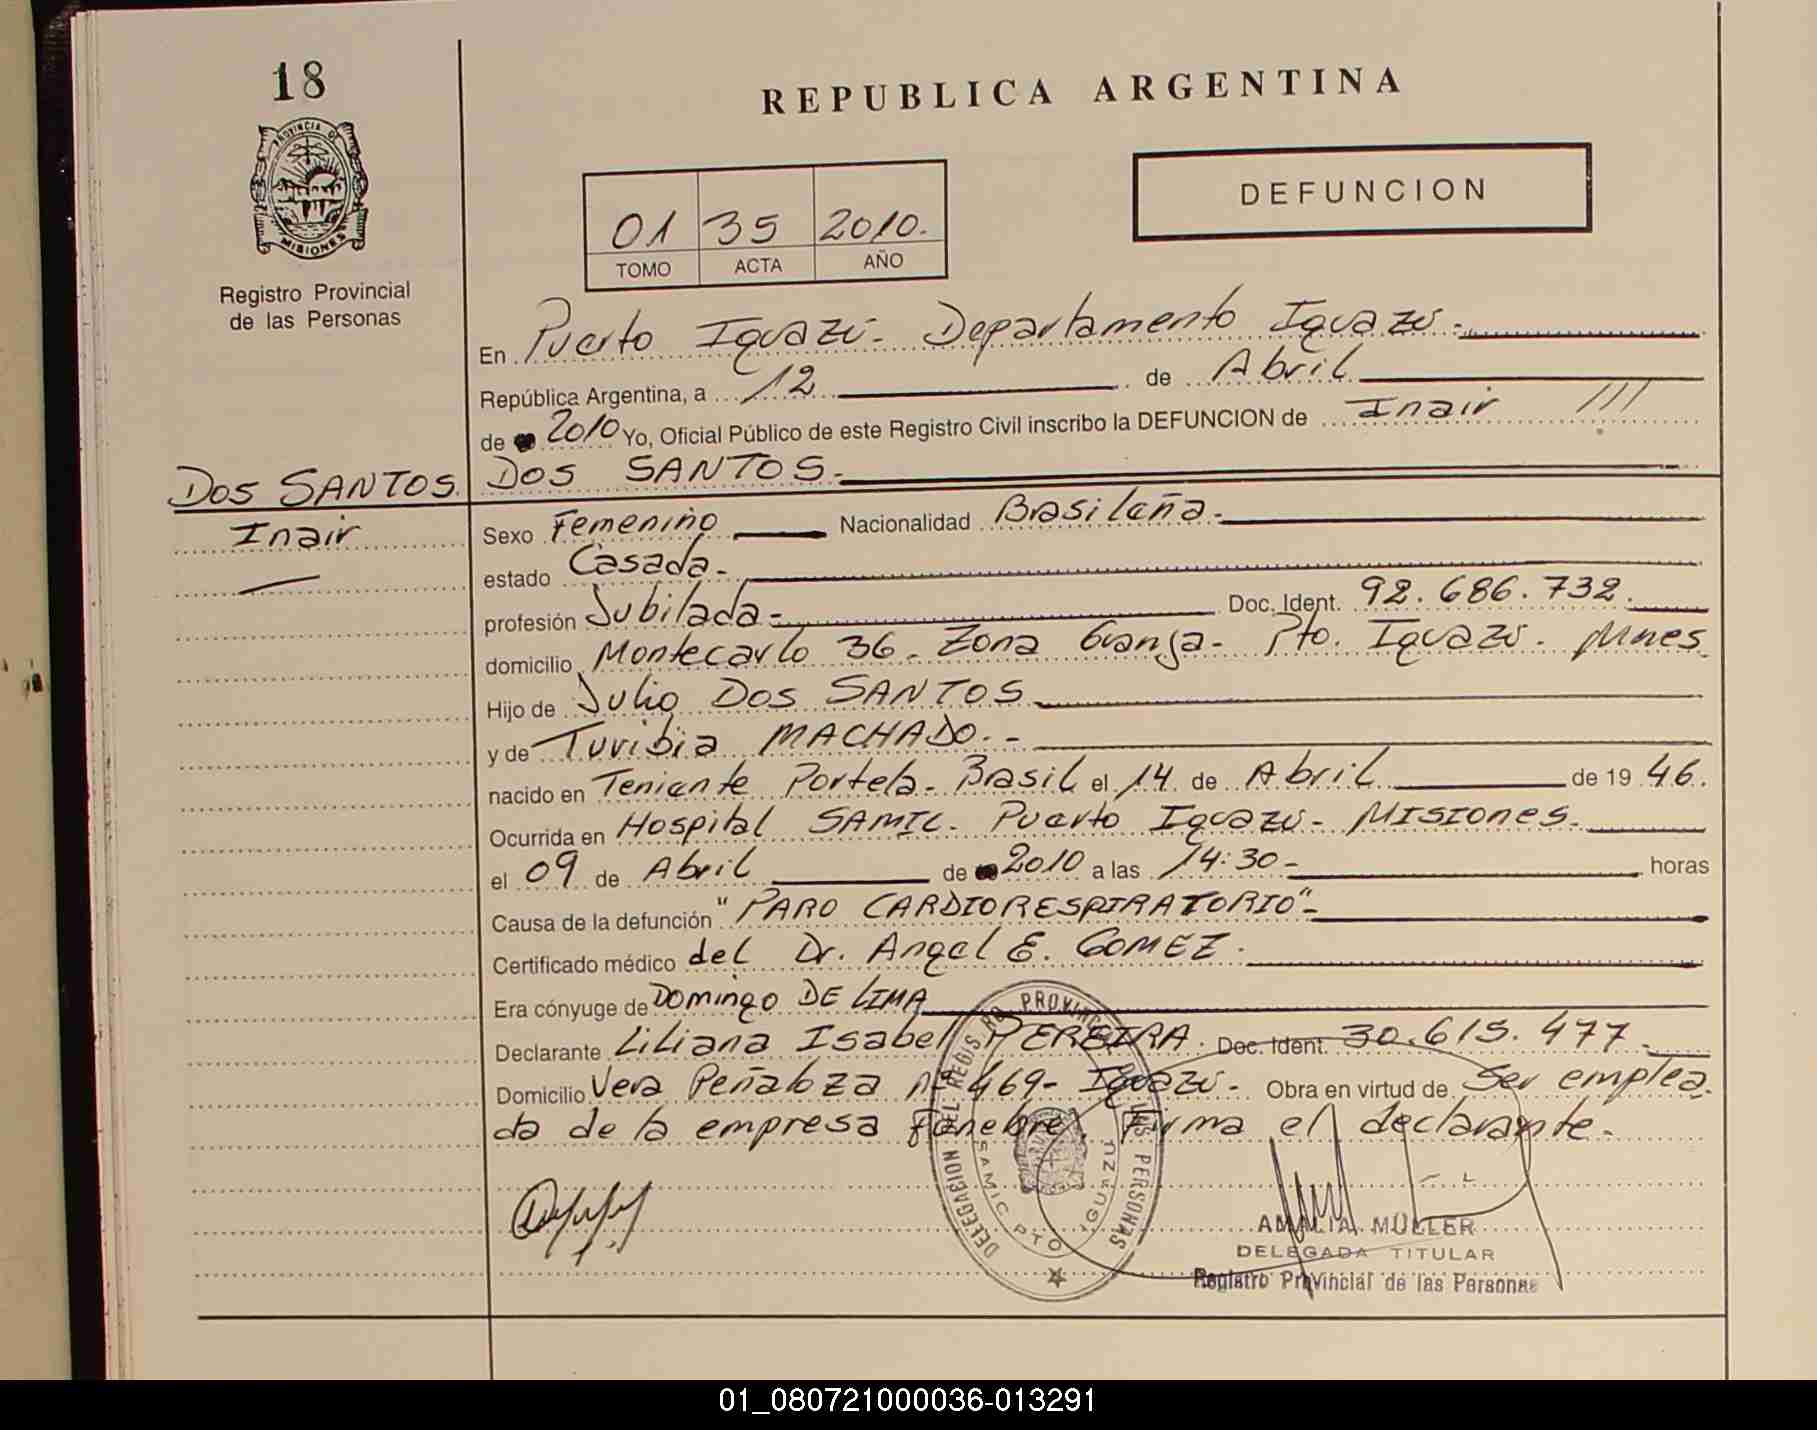 18
PROVINCIA DE
MISIONES
Registro Provincial
de las Personas
REPUBLICA ARGENTINA
DEFUNCION
01 35 2010.
TOMO ACTA AÑO
En Puerto Iguazú - Departamento Iguazú -
República Argentina, a 12 de Abril
de 2010 Yo, Oficial Público de este Registro Civil inscribo la DEFUNCION de Inair ///
DOS SANTOS.-
DOS SANTOS.
Inair
Sexo Femenino Nacionalidad Brasileña.-
estado Casada.-
profesión Jubilada.- Doc. Ident. 92.686.732.
domicilio Montecarlo 36 - Zona Granja - Pto. Iguazú. Mnes.
Hijo de Julio DOS SANTOS
y de Turibia MACHADO.-
nacido en Teniente Portela - Brasil el 14 de Abril de 1946.
Ocurrida en Hospital SAMIC - Puerto Iguazú - MISIONES.
el 09 de Abril de 2010 a las 14:30- horas
Causa de la defunción "PARO CARDIORESPIRATORIO"-
Certificado médico del Dr. Angel E. GOMEZ.
Era cónyuge de Domingo DE LIMA
Declarante Liliana Isabel PEREIRA. Doc. Ident. 30.615.477.
Domicilio Vera Peñaloza nº 469- Iguazú- Obra en virtud de Ser emplea-
da de la empresa fúnebre. Firma el declarante.-
DELEGACION DEL REGISTRO PROVINCIAL DE LAS PERSONAS
SAMIC PTO IGUAZU
AMALIA MÜLLER
DELEGADA TITULAR
Registro Provincial de las Personas
01_080721000036-013291